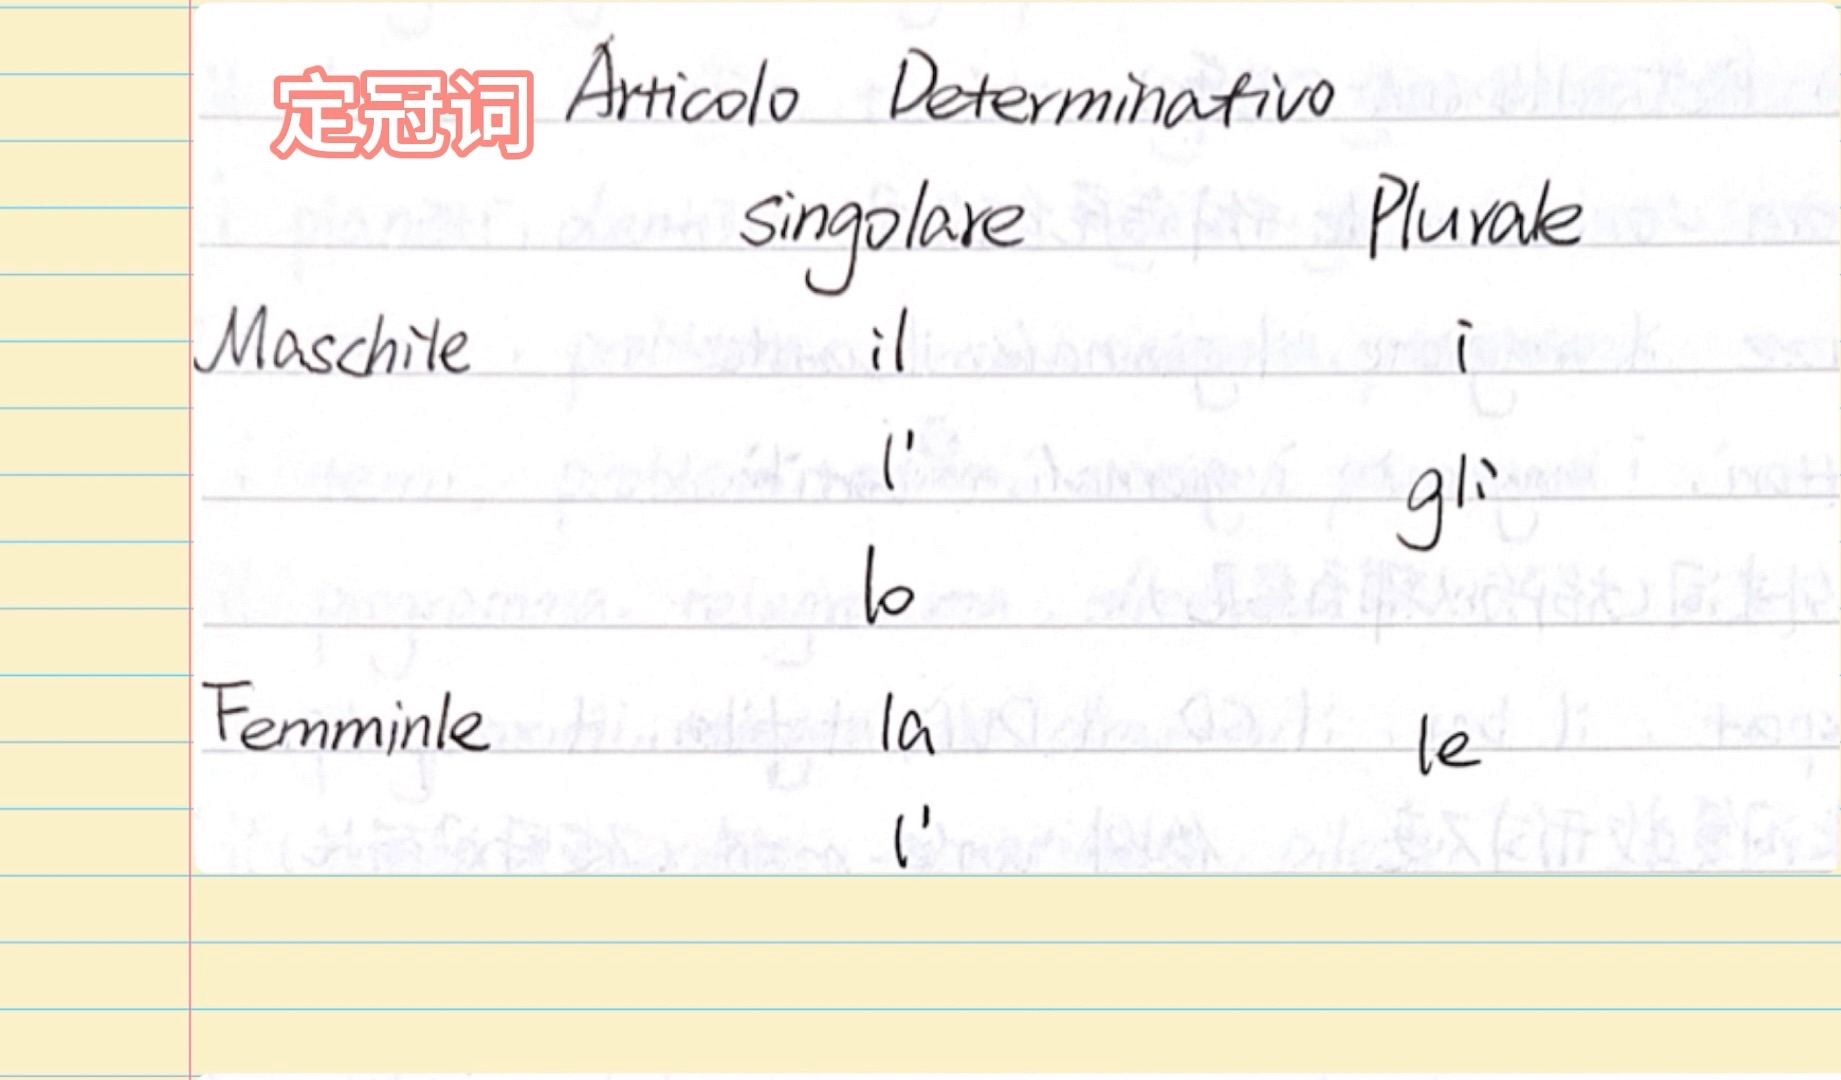 定冠词 Articolo Determinativo
singolare Plurale
Maschile il i
l'
gli
lo
Femminle la le
l'